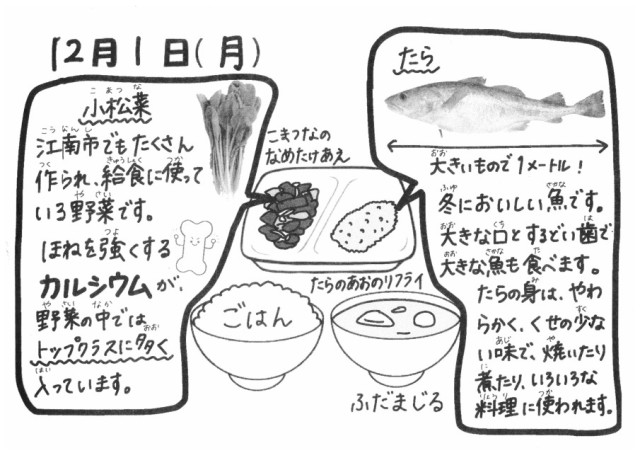 12月1日(月)
小松菜
江南市でもたくさん
作られ、給食に使って
いる野菜です。
ほねを強くする
カルシウムが、
野菜の中では
トップクラスに多く
入っています。
こまつなの
なめたけあえ
たらのあおのりフライ
ごはん
ふだまじる
たら
大きいもので1メートル!
冬においしい魚です。
大きな口とするどい歯で
大きな魚も食べます。
たらの身は、やわ
らかく、くせの少な
い味で、焼いたり
煮たり、いろいろな
料理に使われます。